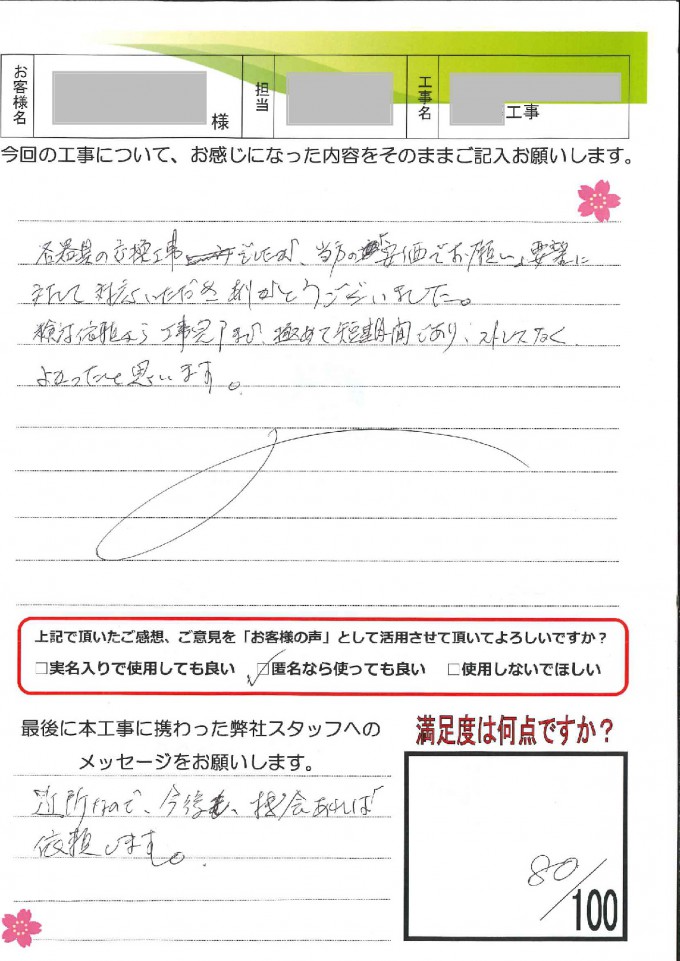 お客様名
様
担当
工事名
工事
今回の工事について、お感じになった内容をそのままご記入お願いします。
各器具の交換工事でしたが、当方の安価でお願い、要望に
対応いただきありがとうございました。
依頼から工事完了まで、極めて短期間であり、ストレスなく
よかったと思います。
上記で頂いたご感想、ご意見を「お客様の声」として活用させて頂いてよろしいですか?
□実名入りで使用しても良い ☑匿名なら使っても良い □使用しないでほしい
最後に本工事に携わった弊社スタッフへの
メッセージをお願いします。
近所なので、今後も、機会あれば
依頼します。
満足度は何点ですか?
80/100